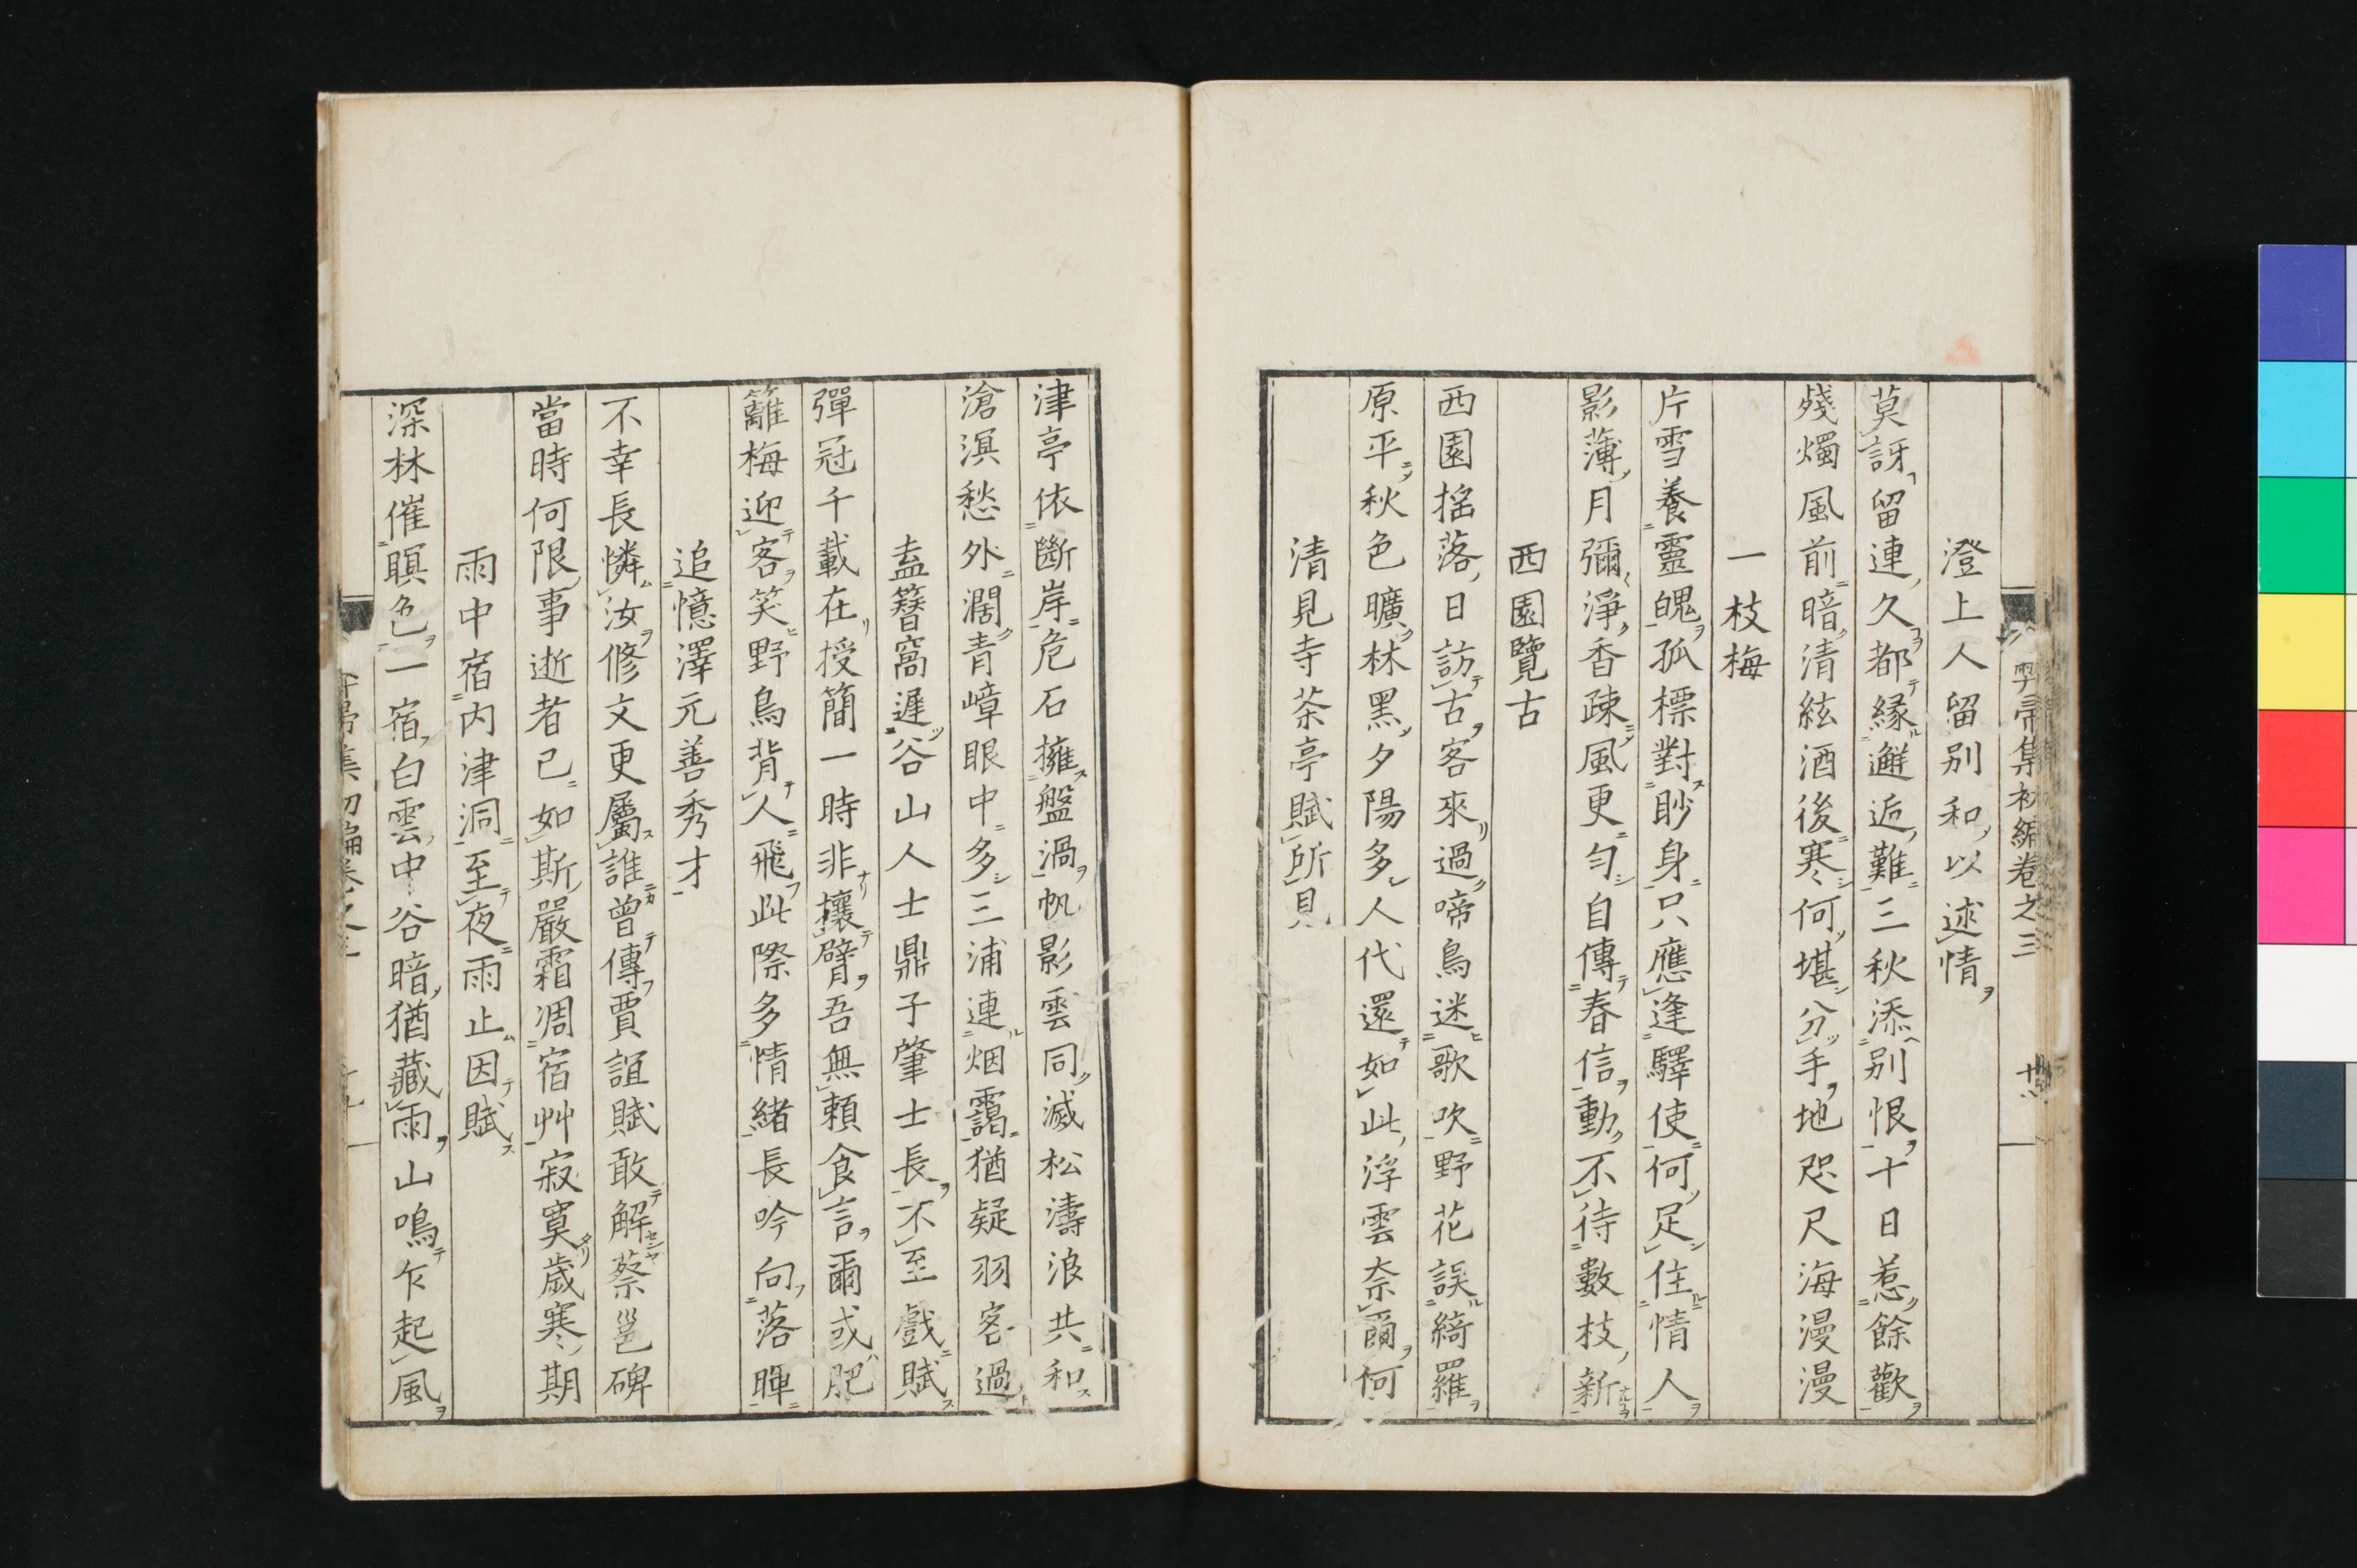 澄上人留別和以述情
莫訝留連久都緣邂逅難三秋添別恨十日惹餘歡
殘燭風前暗清絃酒後寒何堪分手地咫尺海漫漫
一枝梅
片雪養靈魄孤標對眇身只應逢驛使何足住情人
影薄月彌淨香疎風更勻自傳春信動不待數枝新
西園覽古
西園搖落日訪古客來過啼鳥迷歌吹野花誤綺羅
原平秋色曠林黑夕陽多人代還如此浮雲奈爾何
清見寺茶亭賦所見
津亭依斷岸危石擁盤渦帆影雲同滅松濤浪共和
滄溟愁外濶青嶂眼中多三浦連烟靄猶疑羽客過
盍簪窩遲谷山人士鼎子肇士長不至戲賦
彈冠千載在授簡一時非攘臂吾無賴食言爾或肥
籬梅迎客笑野鳥背人飛此際多情緒長吟向落暉
追憶澤元善秀才
不幸長憐汝修文更屬誰曾傳賈誼賦敢解蔡邕碑
當時何限事逝者已如斯嚴霜凋宿艸寂寞歲寒期
雨中宿内津洞至夜雨止因賦
深林催瞑色一宿白雲中谷暗猶藏雨山鳴乍起風